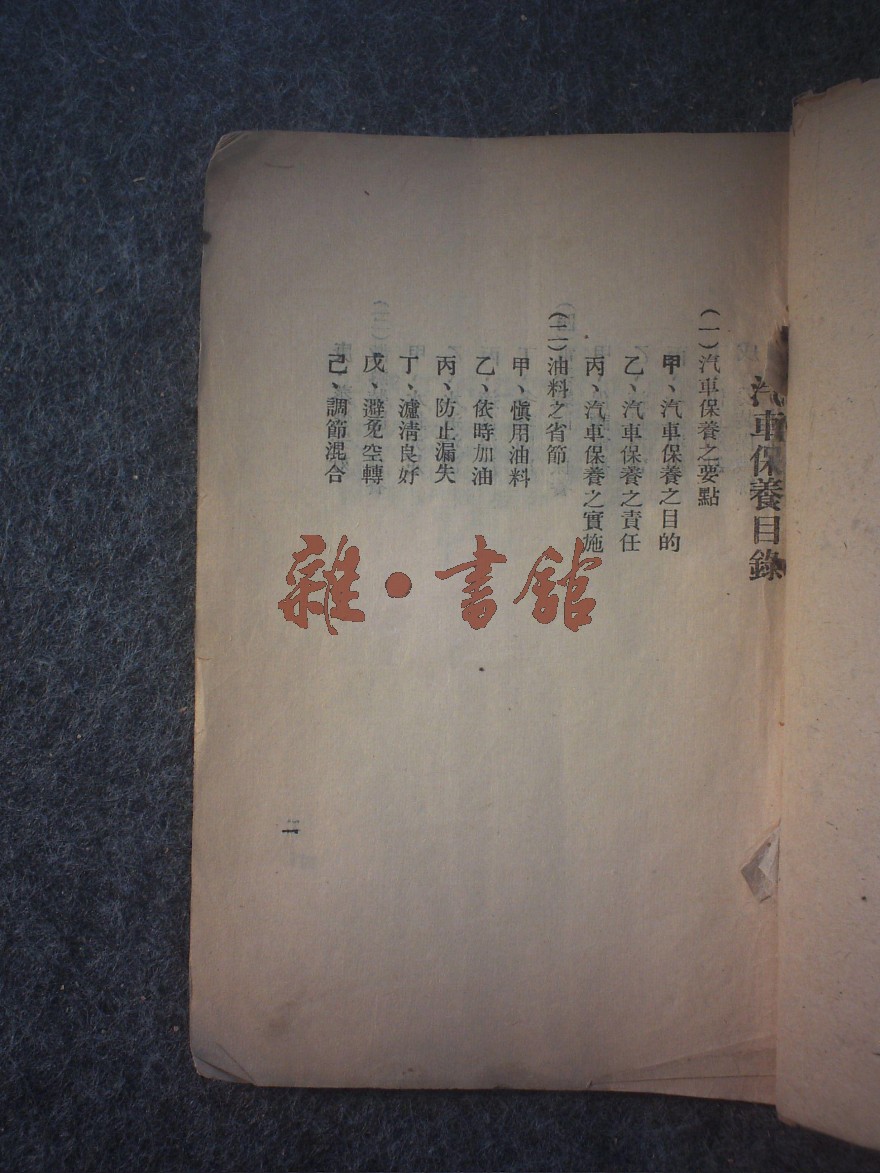 汽車保養目錄
(一)汽車保養之要點
甲、汽車保養之目的
乙、汽車保養之責任
丙、汽車保養之實施
(二)油料之省節
甲、慎用油料
乙、依時加油
丙、防止漏失
丁、濾淸良好
戊、避免空轉
己、調節混合
雜·書館